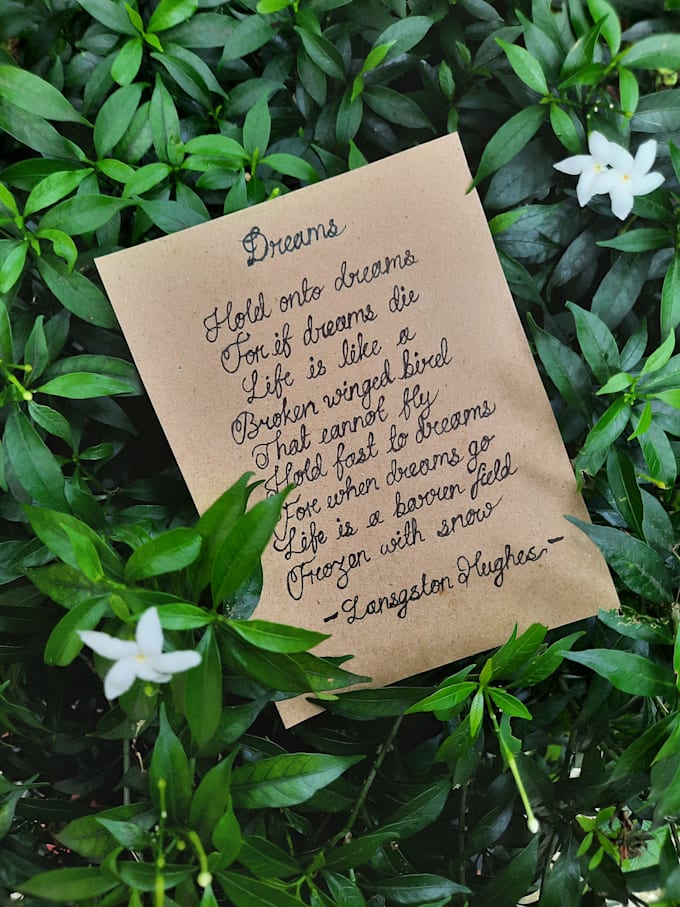 Dreams
Hold onto dreams
For if dreams die
Life is like a
Broken winged bird
That cannot fly
Hold fast to dreams
For when dreams go
Life is a barren field
Frozen with snow
- Lansgston Hughes -